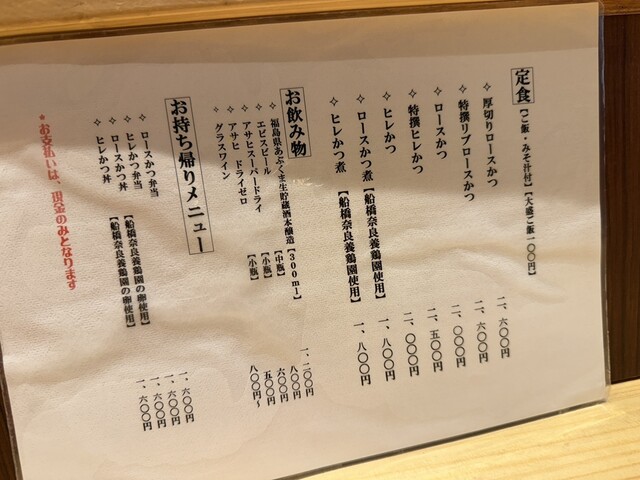 定食【ご飯・みそ汁付】【大盛ご飯一〇〇円】
✧ 厚切りロースかつ 二、六〇〇円
✧ 特撰リブロースかつ 二、六〇〇円
✧ ロースかつ 二、〇〇〇円
✧ 特撰ヒレかつ 二、五〇〇円
✧ ヒレかつ 二、〇〇〇円
✧ ロースかつ煮【船橋奈良養鶏園使用】 一、八〇〇円
✧ ヒレかつ煮【船橋奈良養鶏園使用】 一、八〇〇円
お飲み物
✧ 福島県あぶくま生貯蔵酒本醸造【300ml】 一、二〇〇円
✧ エビスビール【中瓶】 八〇〇円
✧ アサヒスーパードライ【小瓶】 六〇〇円
✧ アサヒ ドライゼロ【小瓶】 五〇〇円
✧ グラスワイン 八〇〇円〜
お持ち帰りメニュー
✧ ロースかつ弁当 一、六〇〇円
✧ ヒレかつ弁当 一、六〇〇円
✧ ロースかつ丼【船橋奈良養鶏園の卵使用】 一、六〇〇円
✧ ヒレかつ丼【船橋奈良養鶏園の卵使用】 一、六〇〇円
＊お支払いは、現金のみとなります